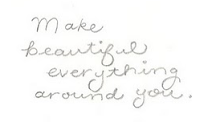 Make
beautiful
everything
around you.